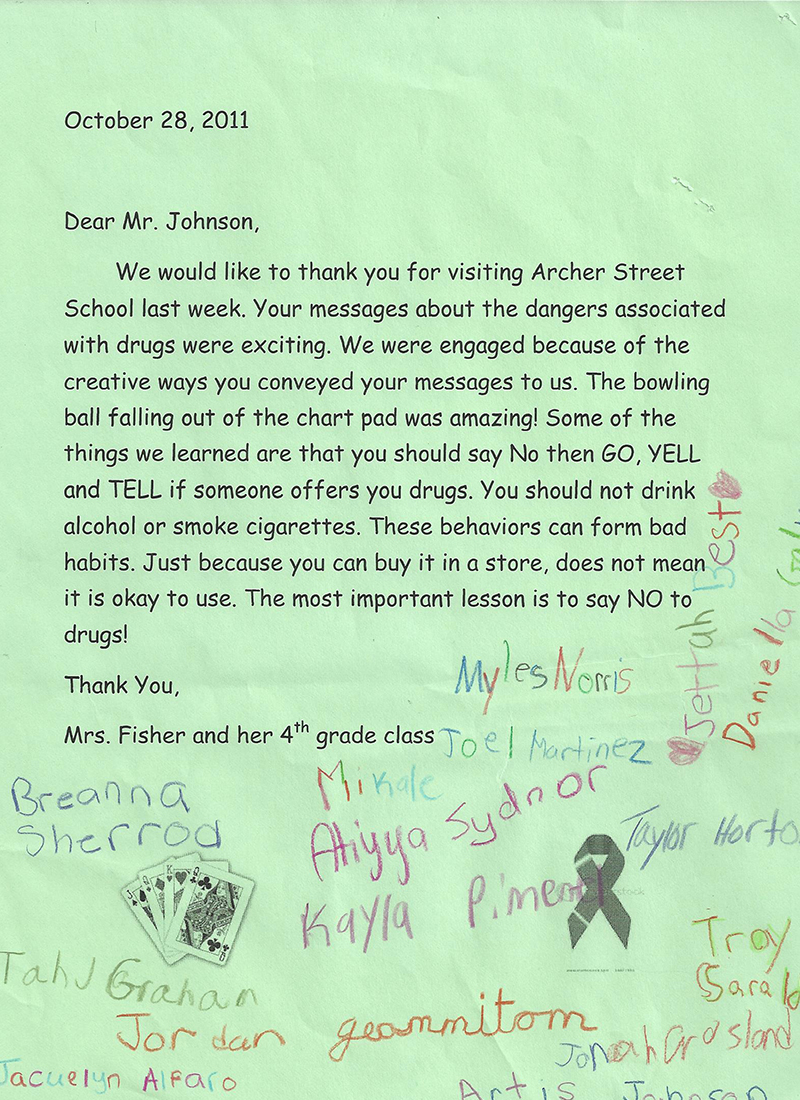 October 28, 2011
Dear Mr. Johnson,
We would like to thank you for visiting Archer Street
School last week. Your messages about the dangers associated
with drugs were exciting. We were engaged because of the
creative ways you conveyed your messages to us. The bowling
ball falling out of the chart pad was amazing! Some of the
things we learned are that you should say No then GO, YELL
and TELL if someone offers you drugs. You should not drink
alcohol or smoke cigarettes. These behaviors can form bad
habits. Just because you can buy it in a store, does not mean
it is okay to use. The most important lesson is to say NO to
drugs!
Thank You,
Mrs. Fisher and her 4th grade class
Jettah Best
Daniella
Myles Norris
Joel Martinez
Mikale
Breanna
Sherrod
Atiyya Sydnor
Taylor Horto
Kayla Pimentel
Troy
Tahj Grahan
Jordan geammitom
Jonah Crosland
Jacuelyn Alfaro
Artis Johnson